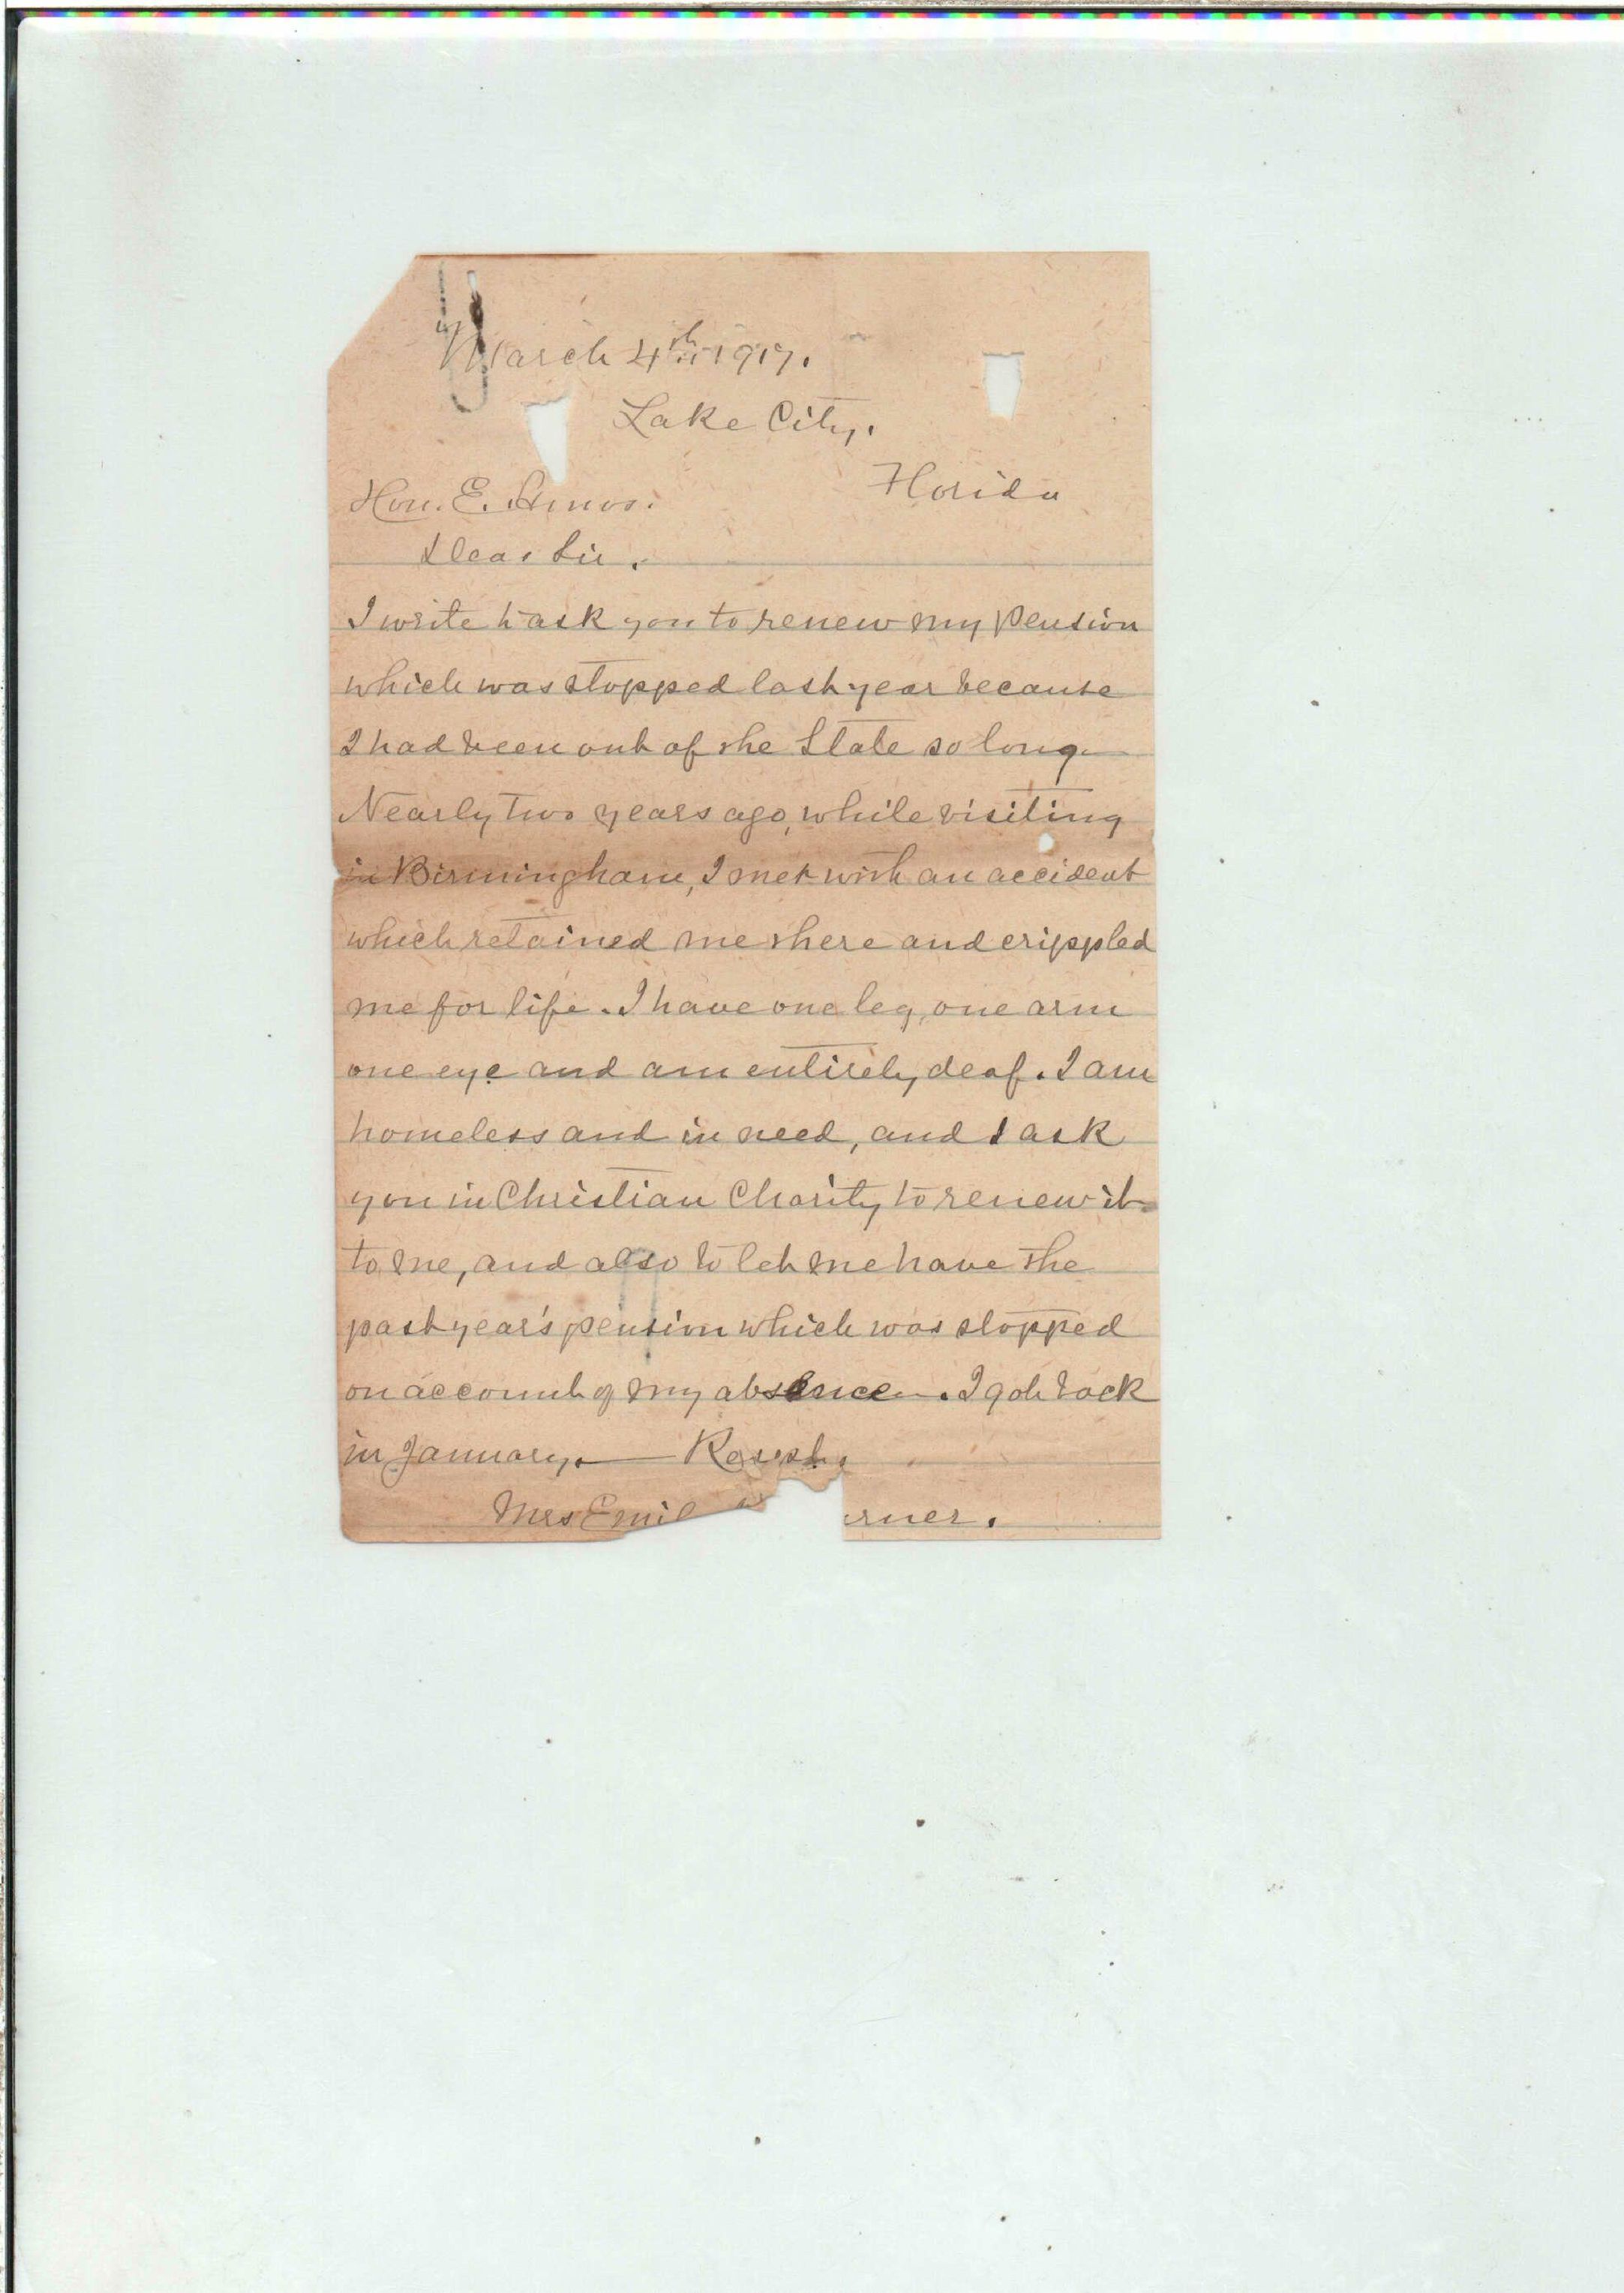 March 4th 1917.
Lake City.
Florida
Hon. E. Amos.
Dear Sir.
I write to ask you to renew my Pension
which was stopped last year because
I had been out of the State so long.
Nearly two years ago, while visiting
in Birmingham, I met with an accident
which retained me there and crippled
me for life. I have one leg, one arm
one eye and am entirely deaf. I am
homeless and in need, and I ask
you in Christian Charity to renew it
to me, and also to let me have the
past year's pension which was stopped
on account of my absence. I got back
in January. — Respt.
Mrs Emil erner.